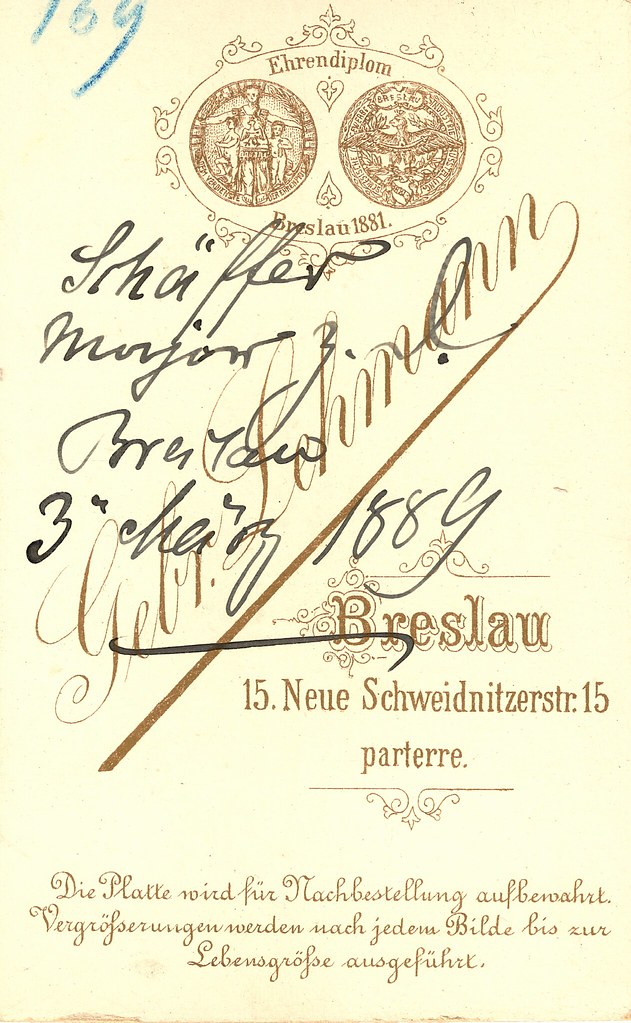 169
Ehrendiplom
BRESLAU
Breslau 1881.
Schäffer
Major z. D.
Breslau
3" März 1889
Gebr. Lehmann
Breslau
15. Neue Schweidnitzerstr. 15
parterre.
Die Platte wird für Nachbestellung aufbewahrt.
Vergrößerungen werden nach jedem Bilde bis zur
Lebensgröße ausgeführt.